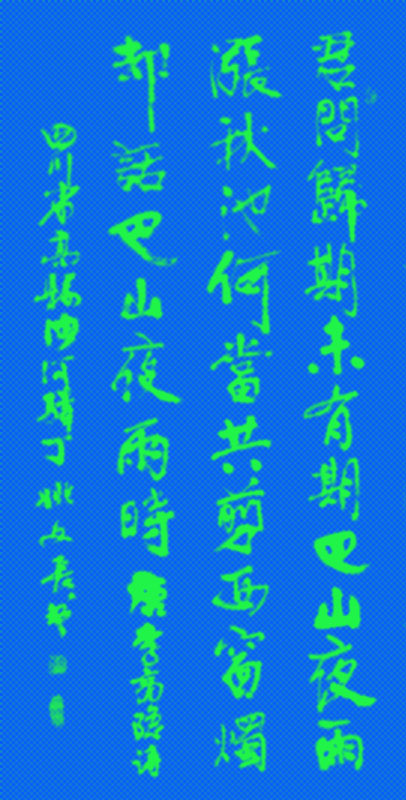 君問歸期未有期巴山夜雨
漲秋池何當共剪西窗燭
却話巴山夜雨時 唐李商隱诗
四川省高縣沙河